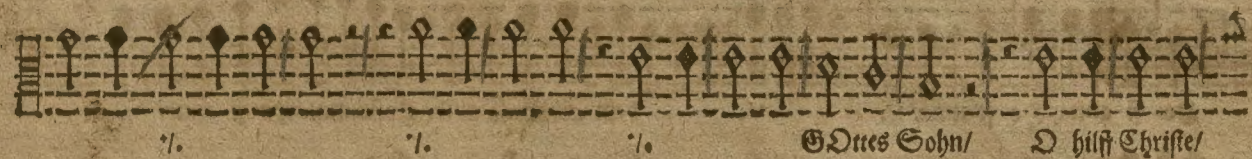 ·/. ·/. ·/. GOttes Sohn/ O hilff Christe/